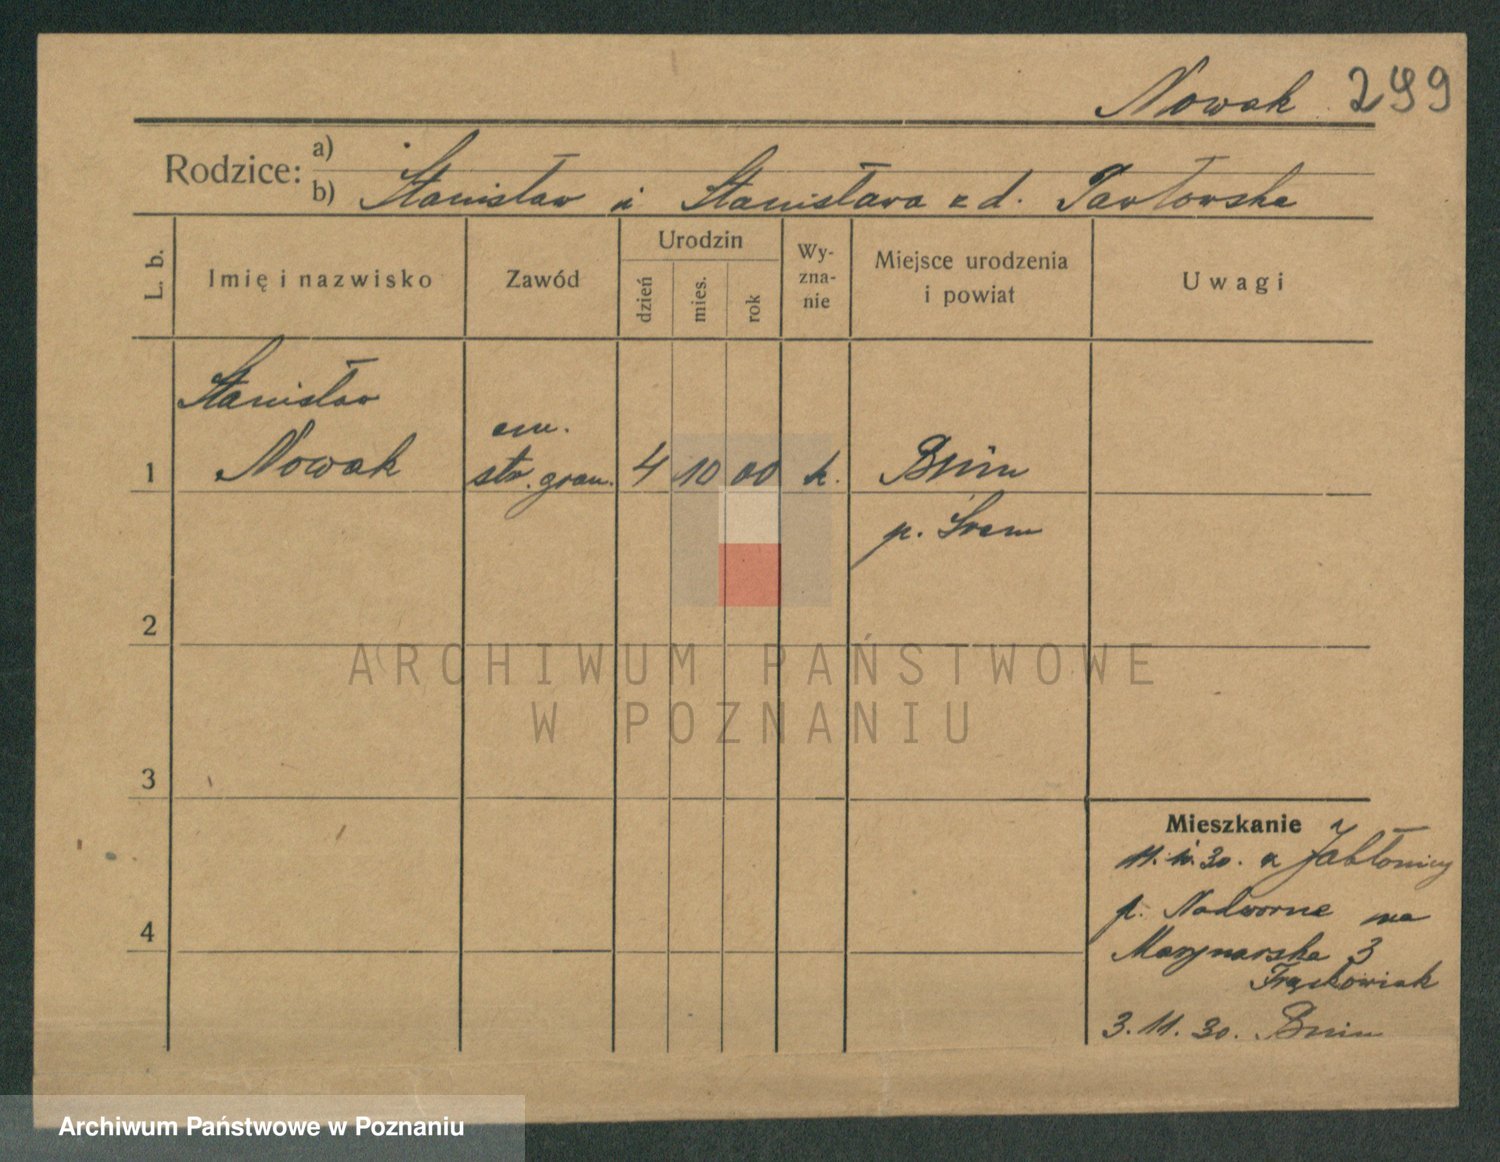 Nowak 299
Rodzice: a)
b) Stanisław i Stanisława z d. Pawłowska
L. b.
Imię i nazwisko
Zawód
Urodzin
dzień
mies.
rok
Wy-
zna-
nie
Miejsce urodzenia
i powiat
Uwagi
Stanisław
em.
1 Nowak str. gran. 4 10 00 k. Bnin
p. Śrem
2
ARCHIWUM PAŃSTWOWE
W POZNANIU
3
Mieszkanie
30. z Jabłonicy
4 p. Nadworne na
Marynarska 3
Frąckowiak
3. 11. 30. Bnin
Archiwum Państwowe w Poznaniu